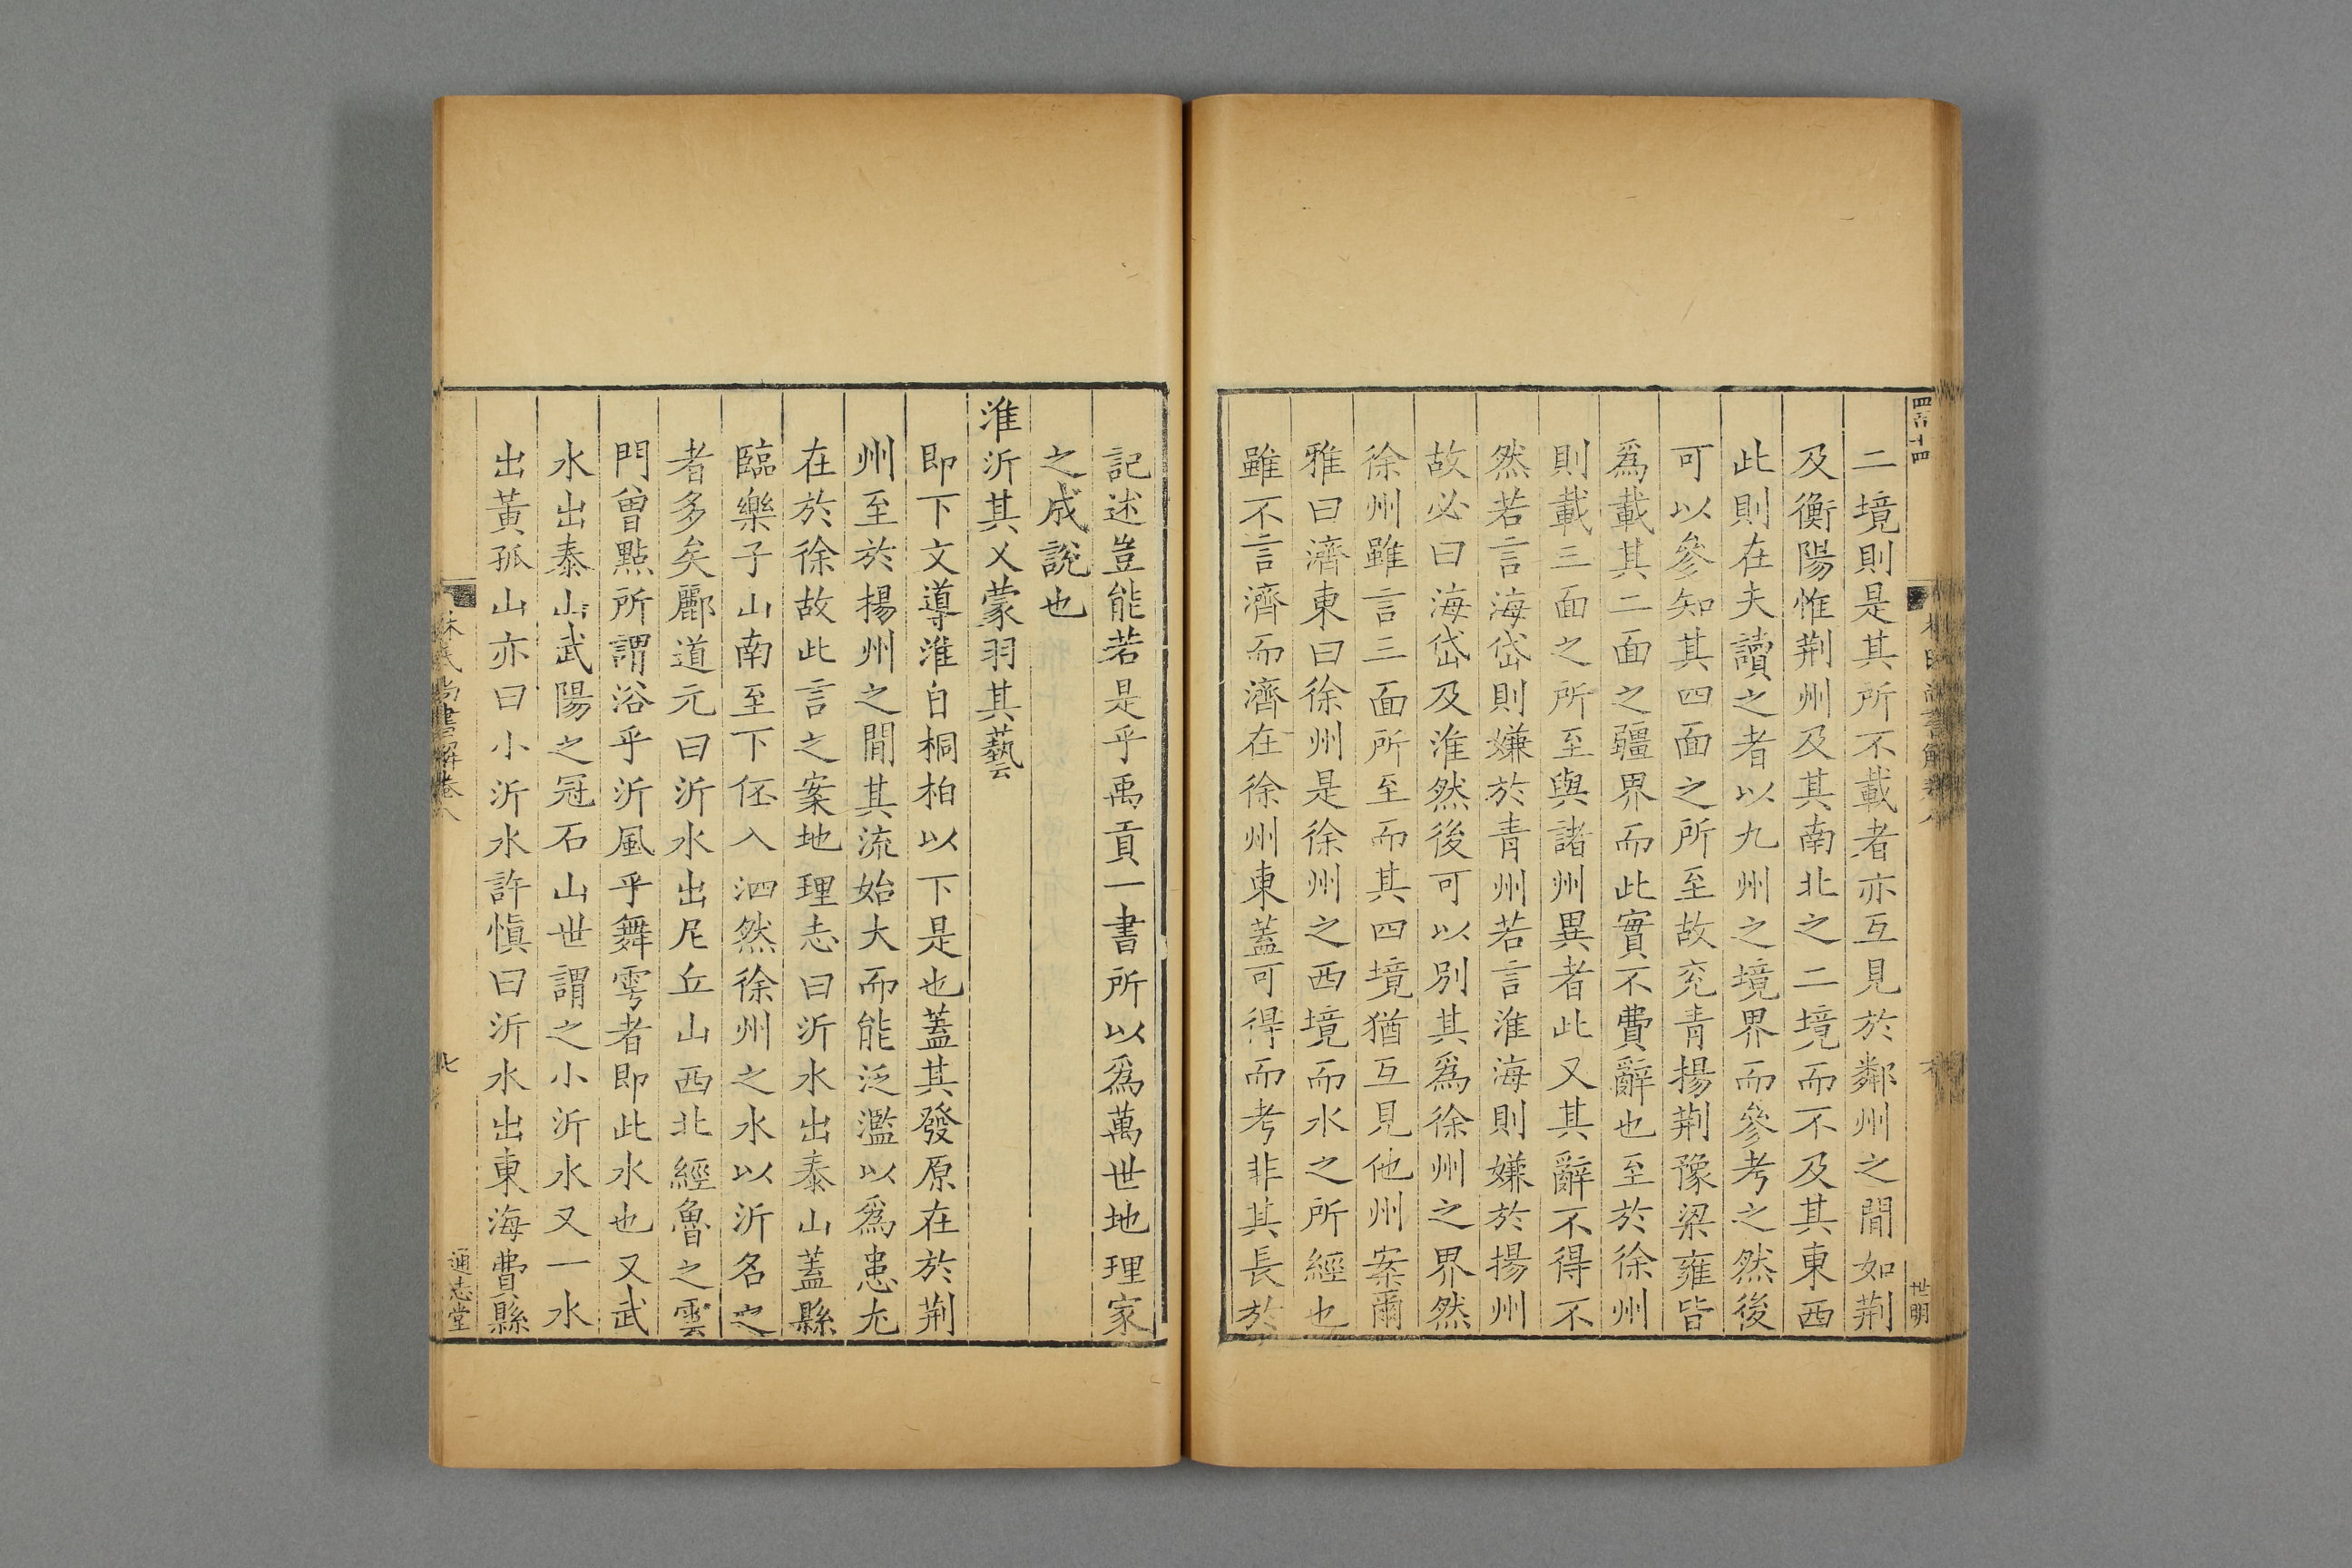 四百十四
世明
二境則是其所不載者亦互見於鄰州之間如荆
及衡陽惟荆州及其南北之二境而不及其東西
此則在夫讀之者以九州之境界而參考之然後
可以參知其四面之所至故兖青揚荆豫梁雍皆
爲載其二面之疆界而此實不費辭也至於徐州
則載三面之所至與諸州異者此又其辭不得不
然若言海岱則嫌於青州若言淮海則嫌於揚州
故必曰海岱及淮然後可以别其爲徐州之界然
徐州雖言三面所至而其四境猶互見他州案爾
雅曰濟東曰徐州是徐州之西境而水之所經也
雖不言濟而濟在徐州東蓋可得而考非其長於
記述豈能若是乎禹貢一書所以爲萬世地理家
之成說也
淮沂其乂蒙羽其藝
即下文導淮自桐柏以下是也蓋其發原在於荆
州至於揚州之間其流始大而能泛濫以爲患尤
在於徐故此言之案地理志曰沂水出泰山蓋縣
臨樂子山南至下邳入泗然徐州之水以沂名之
者多矣酈道元曰沂水出尼丘山西北經魯之雲
門曾點所謂浴乎沂風乎舞雩者即此水也又武
水出泰山武陽之冠石山世謂之小沂水又一水
出黃孤山亦曰小沂水許愼曰沂水出東海費縣
林氏尚書解卷八
七
通志堂